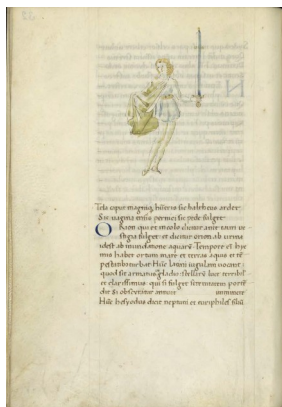 Tela caput magniq; humeris sic balteus ardet
Sic vagina ensis pernici sic pede fulget
Orion qui et incola dicitur ante tauri ve
stigia fulget: et dicitur orion ab urina
idest ab inundatione aquarum Tempore et hye
mis habet ortum mare et terras aquis et tē
pestatibus turbat Hūc latini iugulam uocant
quod sit armatus gladio stellarū luce terribil
et clarissimus. qui si fulget serenitatem portē
dit Si obscuratur
Hūc hesyodus dicit neptuni et euriphiles filiū